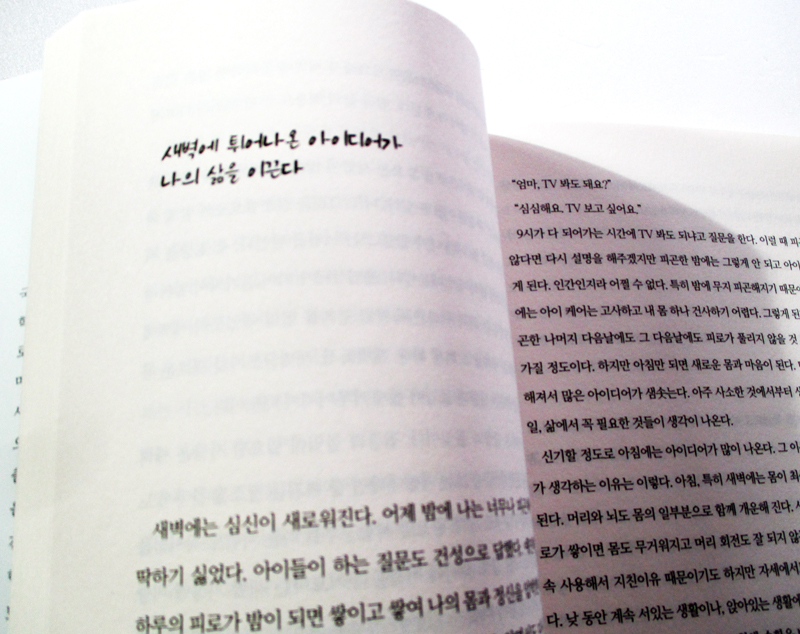 새벽에 튀어나온 아이디어가
나의 삶을 이끈다
새벽에는 심신이 새로워진다. 어제 밤에 나는 너무나
딱하기 싫었다. 아이들이 하는 질문도 건성으로
하루의 피로가 밤이 되면 쌓이고 쌓여 나의 몸과 정신을
"엄마, TV 봐도 돼요?"
"심심해요. TV 보고 싶어요."
9시가 다 되어가는 시간에 TV 봐도 되냐고 질문을 한다. 이럴 때
않다면 다시 설명을 해주겠지만 피곤한 밤에는 그렇게 안 되고
게 된다. 인간인지라 어쩔 수 없다. 특히 밤에 무지 피곤해지기
에는 아이 케어는 고사하고 내 몸 하나 건사하기 어렵다. 그렇게
곤한 나머지 다음날에도 그 다음날에도 피로가 풀리지 않을 것
가질 정도이다. 하지만 아침만 되면 새로운 몸과 마음이 된다.
해져서 많은 아이디어가 샘솟는다. 아주 사소한 것에서부터
일, 삶에서 꼭 필요한 것들이 생각이 나온다.
신기할 정도로 아침에는 아이디어가 많이 나온다. 그
가 생각하는 이유는 이렇다. 아침, 특히 새벽에는 몸이
된다. 머리와 뇌도 몸의 일부분으로 함께 개운해 진다.
로가 쌓이면 몸도 무거워지고 머리 회전도 잘 되지
속 사용해서 지친이유 때문이기도 하지만 자세에서
다. 낮 동안 계속 서있는 생활이나, 앉아있는